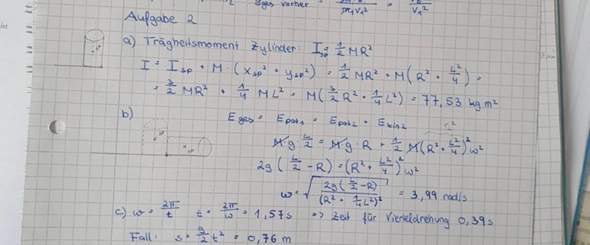 Eges vorher =
m1v1² v1²
Aufgabe 2
a) Trägheitsmoment Zylinder: Isp = 1/2 MR²
I = Isp + M (xsp² + ysp²) = 1/2 MR² + M(R² + L²/4) =
= 3/2 MR² + 1/4 ML² = M(3/2 R² + 1/4 L²) = 77,53 kg m²
b) Eges = Epot1 = Epot2 + Ekin2
M g L/2 = M g R + 1/2 M(R² + L²/4)² ω²
2g (L/2 - R) = (R² + L²/4)² ω²
ω = √(2g(L/2 - R) / (R² + 1/4 L²)²) = 3,99 rad/s
c) ω = 2π/t t = 2π/ω = 1,57s => Zeit für Vierteldrehung 0,39s
Fall: s = g/2 t² = 0,76 m